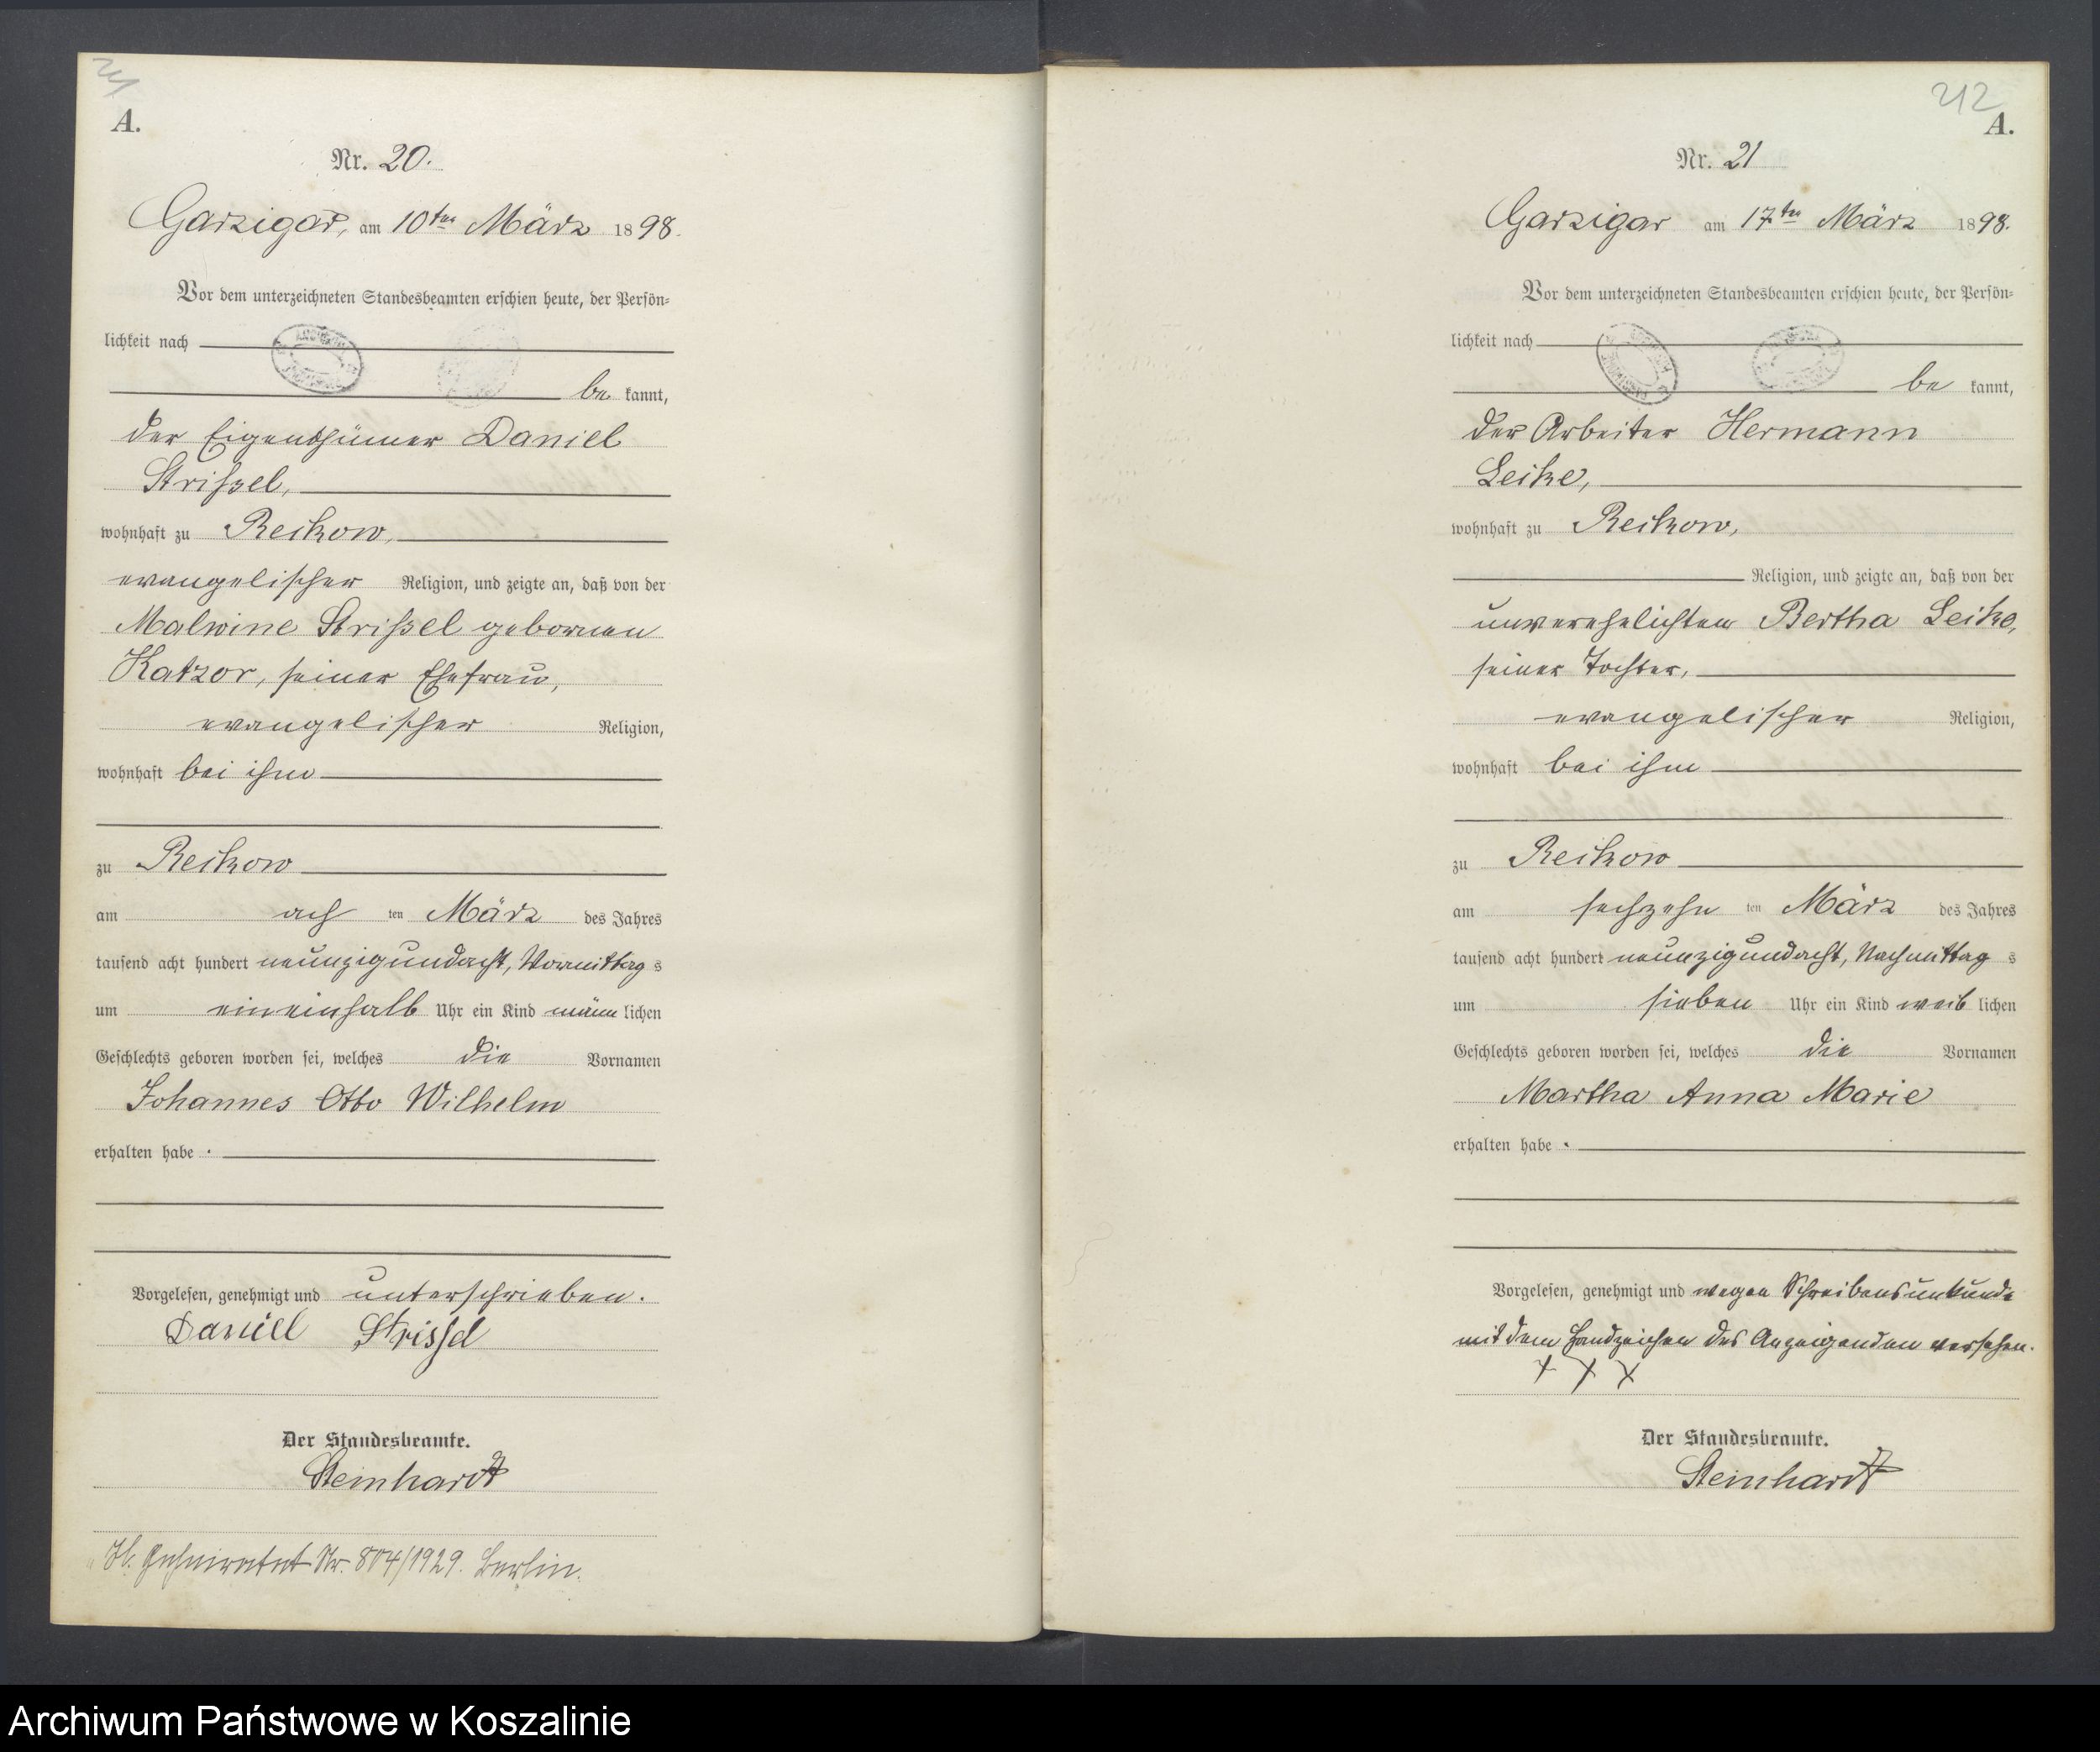 A.
Nr. 20.
Garzigar, am 10ten März 1898.
Vor dem unterzeichneten Standesbeamten erschien heute, der Persön-
lichkeit nach
be kannt,
der Eigenthümer Daniel
Strißel,
wohnhaft zu Reckow,
evangelischer Religion, und zeigte an, daß von der
Malwine Strißel gebornen
Katzor, seiner Ehefrau,
evangelischer Religion,
wohnhaft bei ihm
zu Reckow
am ach ten März des Jahres
tausend acht hundert neunzigundacht, Vormittag s
um eineinhalb Uhr ein Kind männ lichen
Geschlechts geboren worden sei, welches die Vornamen
Johannes Otto Wilhelm
erhalten habe.
Vorgelesen, genehmigt und unterschrieben.
Daniel Strissel
Der Standesbeamte.
Steinhardt
Nr. 804/1929. Berlin.
212
A.
Nr. 21
Garzigar am 17ten März 1898.
Vor dem unterzeichneten Standesbeamten erschien heute, der Persön-
lichkeit nach
be kannt,
der Arbeiter Hermann
Leike,
wohnhaft zu Reckow,
Religion, und zeigte an, daß von der
unverehelichten Bertha Leike,
seiner Tochter,
evangelischer Religion,
wohnhaft bei ihm
zu Reckow
am sechzehn ten März des Jahres
tausend acht hundert neunzigundacht, Nachmittag s
um sieben Uhr ein Kind weib lichen
Geschlechts geboren worden sei, welches die Vornamen
Martha Anna Marie
erhalten habe.
Vorgelesen, genehmigt und wegen Schreibensunkunde
mit dem Handzeichen des Anzeigenden versehen.
+ + +
Der Standesbeamte.
Steinhardt
Archiwum Państwowe w Koszalinie